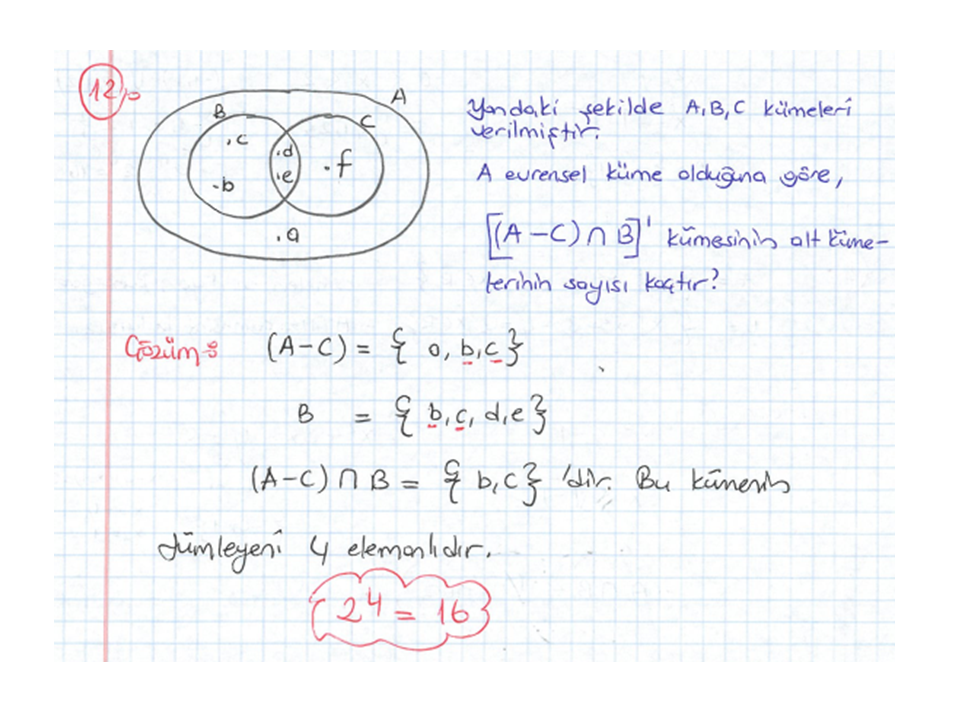 12)
A
B
C
.c
.d
.e
.f
.b
.a
Yandaki şekilde A, B, C kümeleri
verilmiştir.
A evrensel küme olduğuna göre,
[(A-C)∩B]' kümesinin alt küme-
lerinin sayısı kaçtır?
Çözüm: (A-C) = { a, b, c }
B = { b, c, d, e }
(A-C)∩B = { b, c } 'dir. Bu kümenin
tümleyeni 4 elemanlıdır.
2⁴ = 16